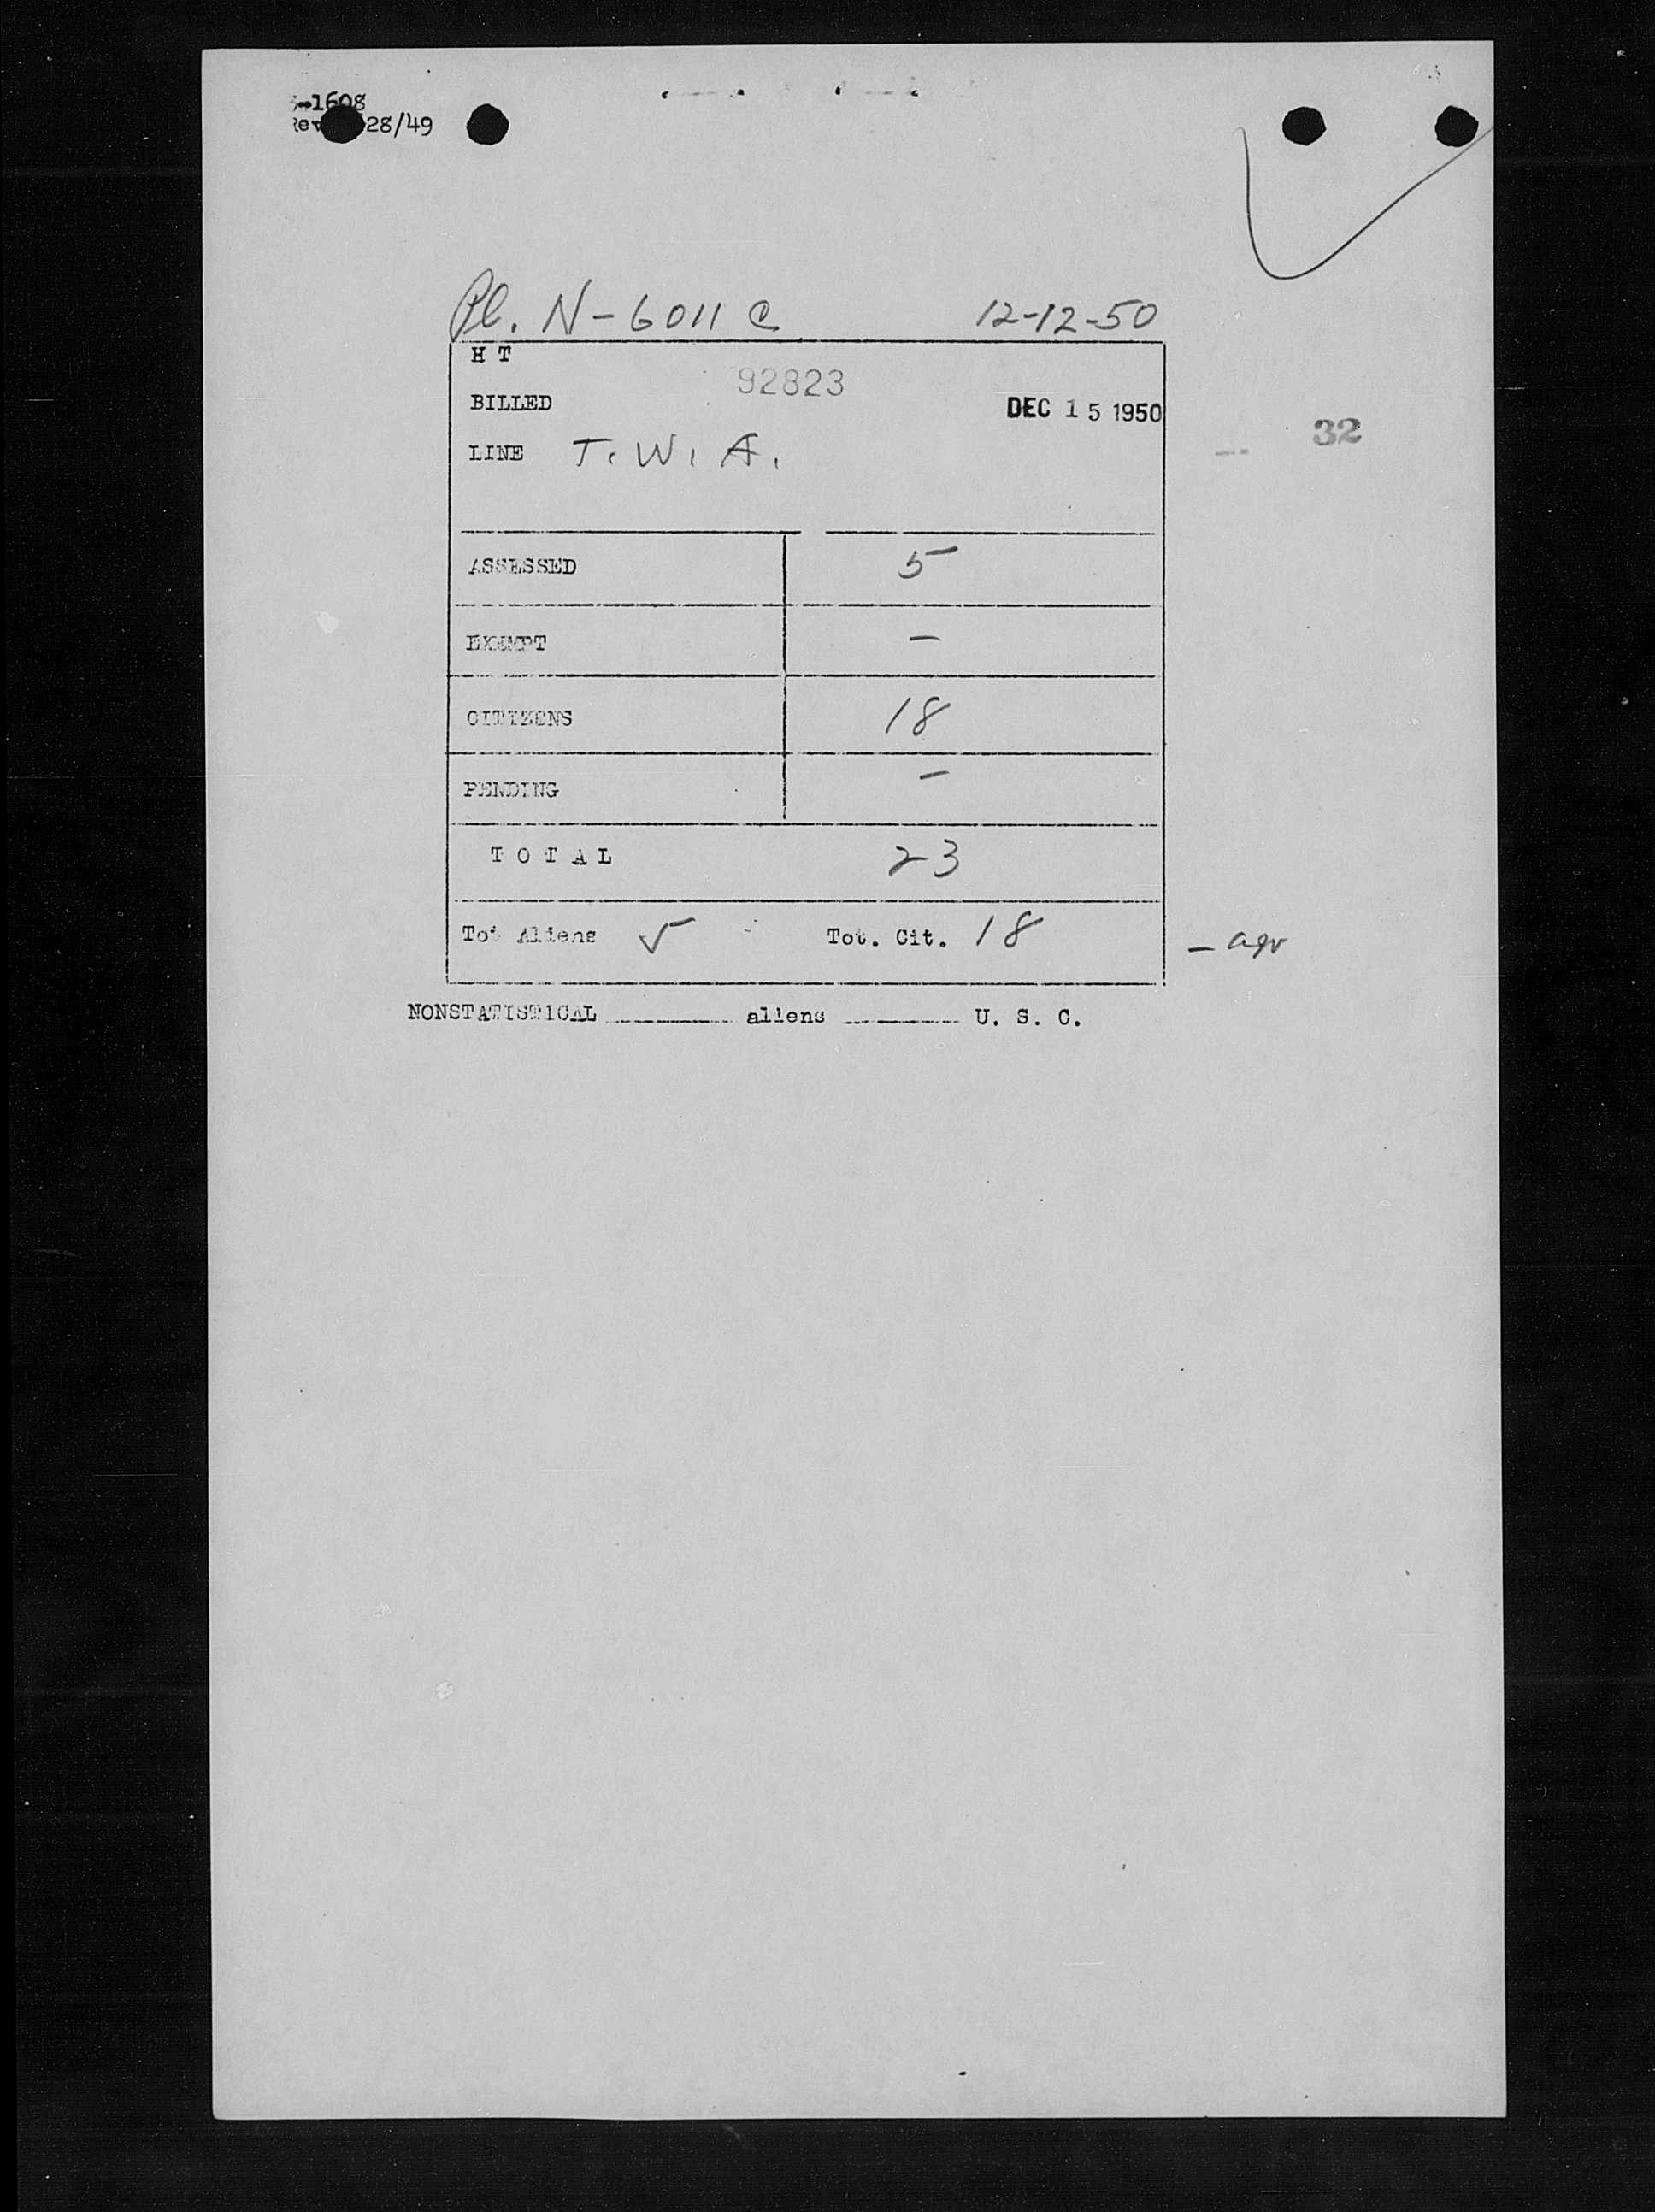 -1608
Rev 28/49
Pl. N-6011 C 12-12-50
H T
92823
BILLED DEC 15 1950
32
LINE T. W. A.
ASSESSED 5
EXEMPT -
CITIZENS 18
PENDING -
T O T A L 23
Tot Aliens 5 Tot. Cit. 18
NONSTATISTICAL ____ aliens ____ U. S. C.